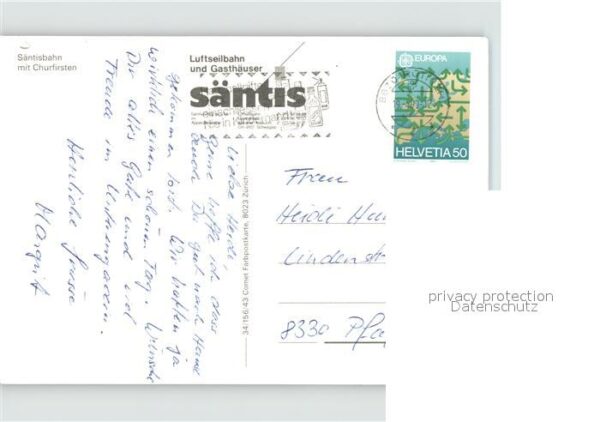 Säntisbahn
mit Churfirsten
Luftseilbahn
und Gasthäuser
säntis
EUROPA
HELVETIA 50
Liebe Heidi,
Gerne hoffe ich dass
auch Du gut nach Hause
gekommen bist. Wir hatten ja
wirklich einen schönen Tag. Wünsche
Dir alles Gute und viel
Freude im
Herzliche Grüsse
Margrit
34/156/43 Comet Farbpostkarte, 8023 Zürich
Frau
Heidi
Lindenst
8330
privacy protection
Datenschutz